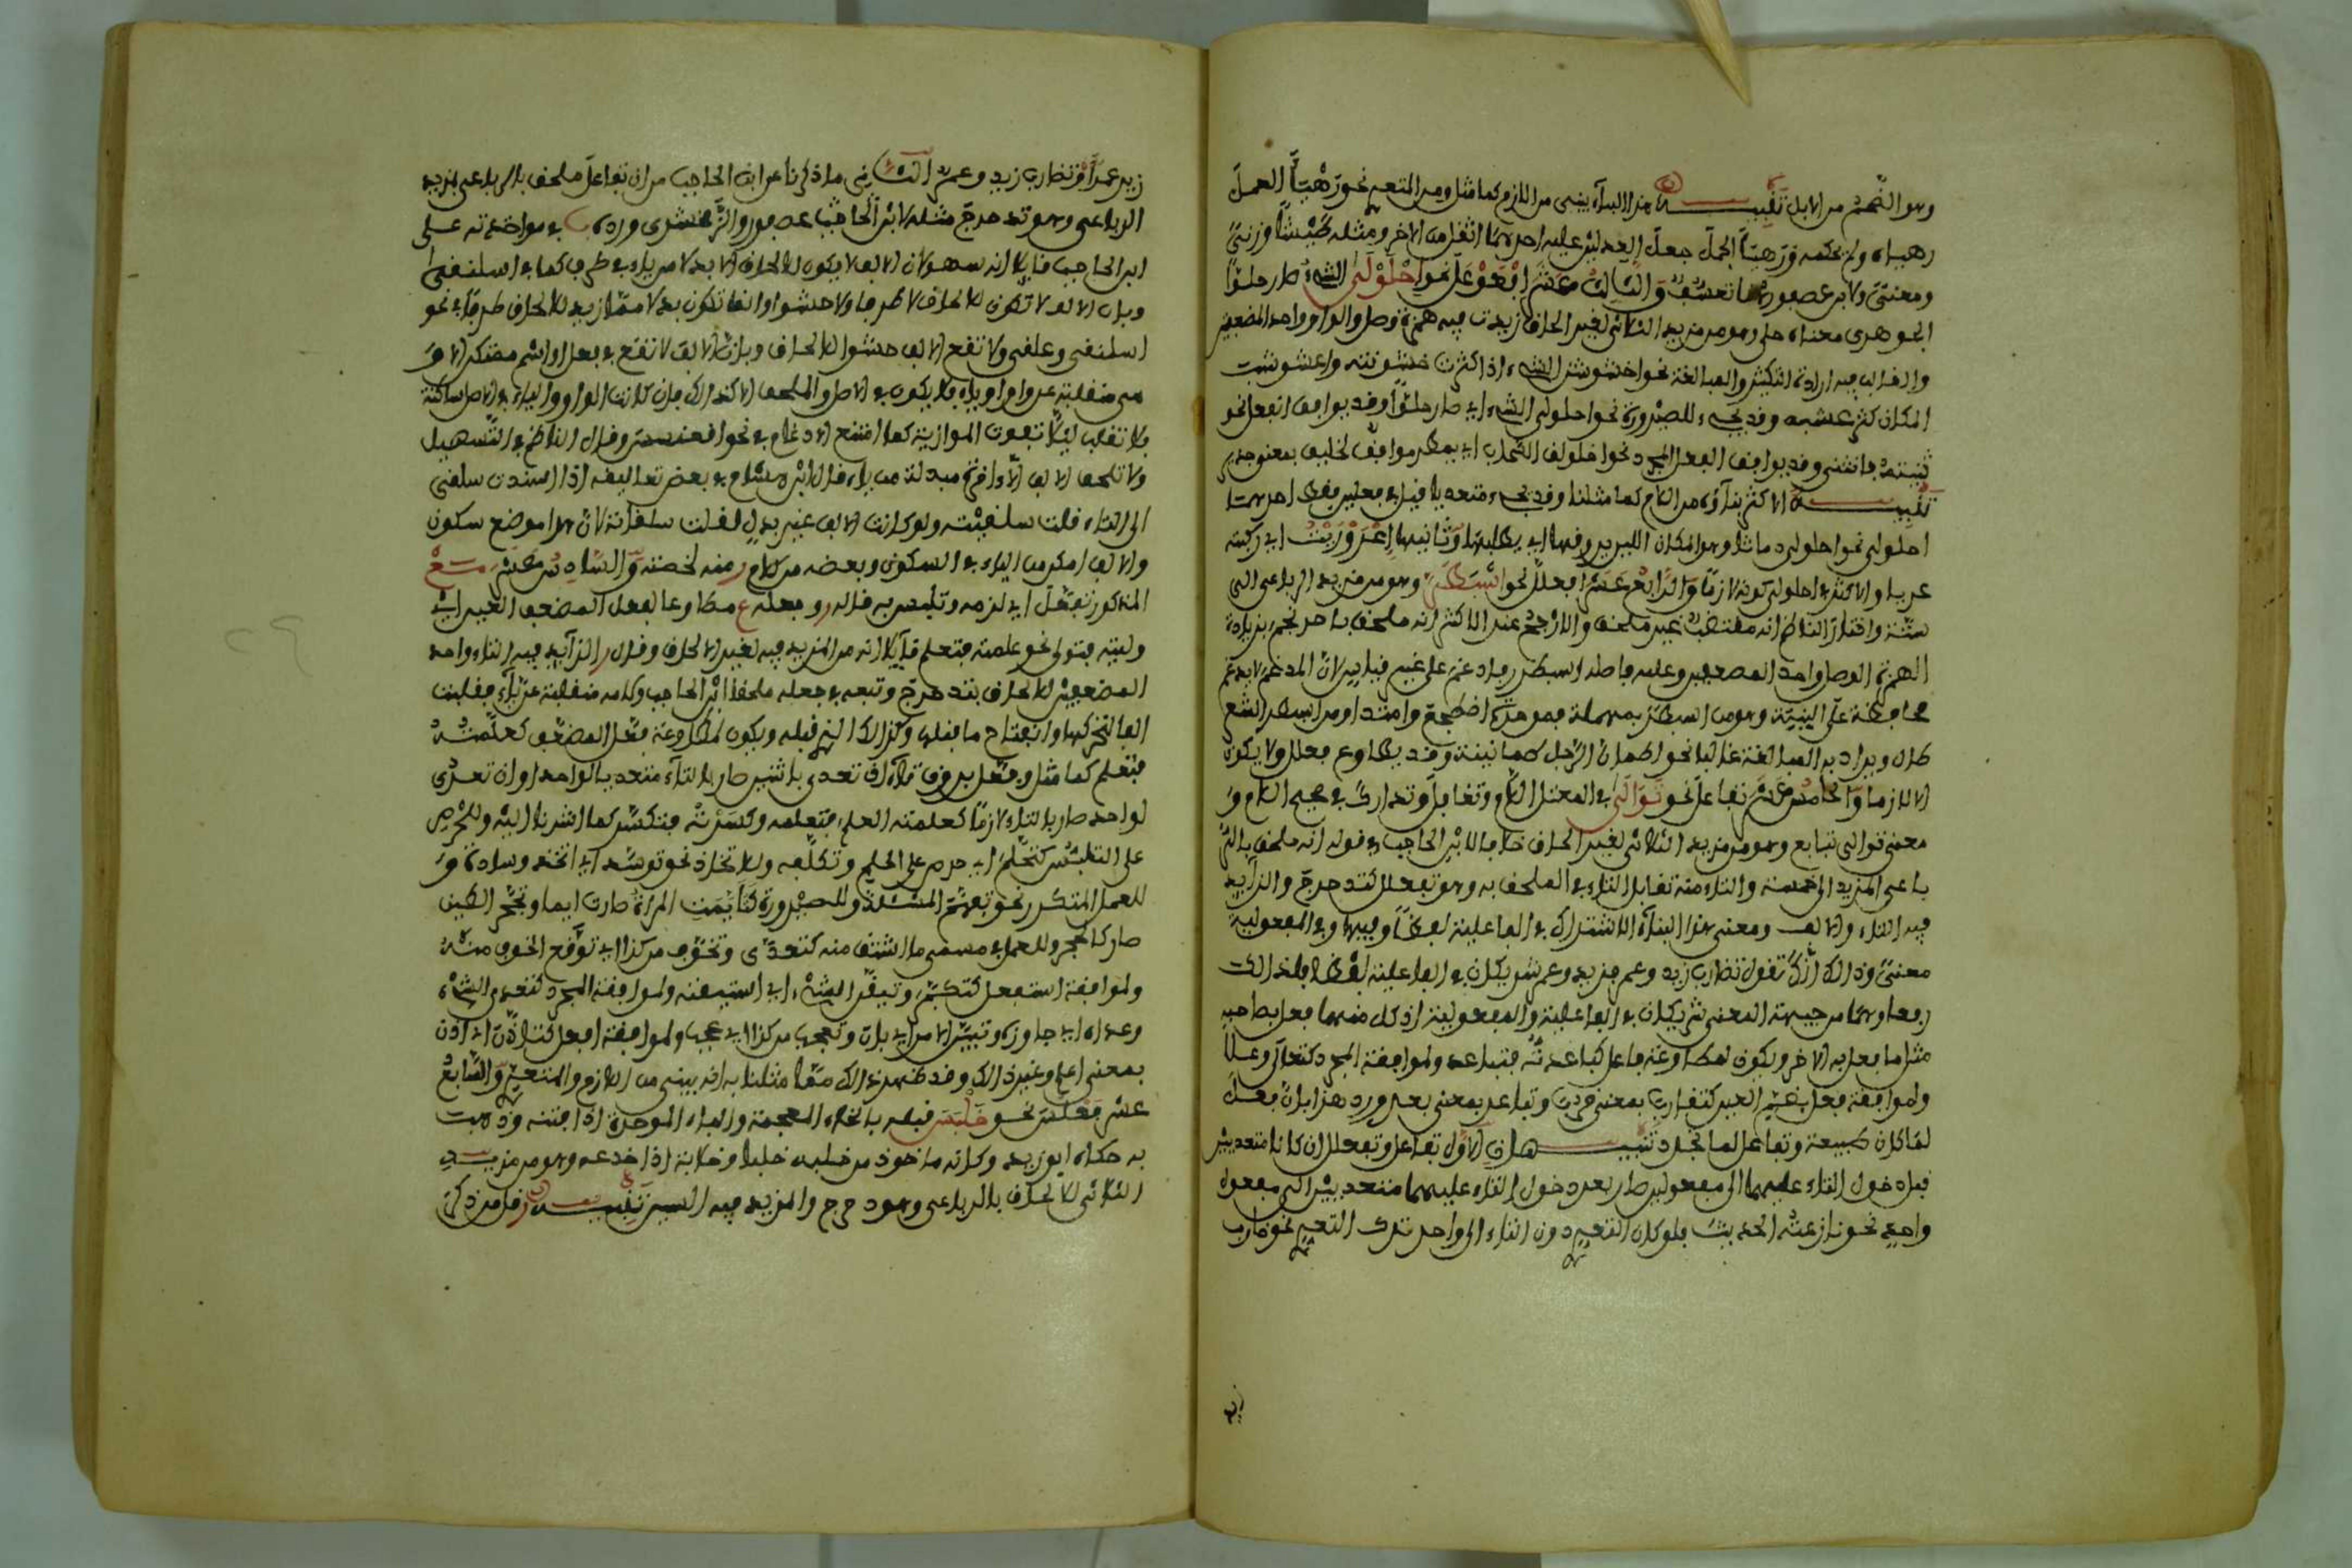 وهو الضخم من الابل تنبيه هذا البناء يبنى من اللازم كما مثل ومن المتعدي نحو رهيأ العمل
رهياه ولم يحكمه ورهيأ الحمل جعل العدلين عليه احدهما اثقل من الاخر ومثله طشيأ وزنى
ومعنى ولابن عصفور هنا تعسف والثالث عشر افعوعل نحو احلولى الشيء صار حلوا
الجوهري معناه حلى وهو من مزيد الثلاثي لغير الحاق زيدت فيه همزة وصل والواو واحد المضعفين
والغالب فيه ارادة التكثير والمبالغة نحو اخشوشن الشيء اذا كثرت خشونته واعشوشب
المكان كثر عشبه وقد يجيء للصيرورة نحو احلولى الشيء اي صار حلوا وقد يوافق انفعل نحو
ثنيته فاثنونى وقد يوافق الفعل المجرد نحو اخلولق السحاب اي يمطر موافق لخلق بمعنى جدير
تنبيه الاكثر بناؤه من اللازم كما مثلنا وقد يجيء متعديا قيل في فعلين فقط احدهما
احلولى نحو احلولى دماثا وهو المكان اللين يروقها اي يطلبها وثانيهما اعروريت اي ركبته
عريا والاكثر في احلولى كونه لازما والرابع عشر افعلل نحو اسبطر وهو من مزيد الرباعي الى
ستة واختار الناظم انه مقتضب غير ملحق والارجح عند الاكثر انه ملحق باحرنجم بزيادة
الهمزة الوصل واحد المضعفين وعليه فاصله اسبطرر فادغم على غير قياس لان المدغم لا يدغم
محافظة على البنية وهو من اسبطر بمهملة فموحدة اضطجع وامتد او من اسبطر الشعر
طال ويراد به المبالغة غالبا نحو اطمأن الرجل طمأنينة وقد يطاوع فعلل ولا يكون
الا لازما والخامس عشر تفاعل نحو توالى في المعتل اللام وتغافل وتدارك في صحيح اللام و
معنى توالى تتابع وهو من مزيد الثلاثي لغير الحاق خلافا لابن الحاجب في قوله انه ملحق بالر
باعي المزيد الى خمسة والتاء منه تقابل التاء في الملحق به وهو تفعلل كتدحرج والزايد
فيه التاء والالف ومعنى هذا البناء الاشتراك في الفاعلية لفظا وفيها وفي المفعولية
معنى وذلك انك تقول تضارب زيد وعمرو فزيد وعمرو شريكان في الفاعلية لفظا فلذلك
رفعا وهما من جهة المعنى شريكان في الفاعلية والمفعولية اذ كل منهما فعل بصاحبه
مثل ما فعل به الاخر ويكون لمطاوعة فاعل كباعدته فتباعد ولموافقة المجرد كتعالى وعلا
ولموافقة فعل بضم العين كتقارب بمعنى قرب وتباعد بمعنى بعد ورد هذا بان فعل
لما كان طبيعة وتفاعل لما تجدد تنبيهان الاول تفاعل وتفعلل ان كانا متعديين
قبل دخول التاء عليهما الى مفعولين صار بعد دخول التاء عليهما متعديين الى مفعول
واحد نحو نازعته الحديث فلو كان التعدي دون التاء الى واحد ترك التعدي نحو ضارب
زيد
زيد عمرا وتضارب زيد وعمرو الثاني ما ذكرنا عن ابن الحاجب من ان تفاعل ملحق بالرباعي بمزيد
الرباعي وهو تدحرج مثله لابن الحاجب عصفور والزمخشري ورده في مواخذته على
ابن الحاجب قايلا انه سهو لان الالف لا يكون للالحاق الا بدلا من ياء في طرف كما في اسلنقى
وبان الالف لا تكون للالحاق لا طرفا ولا حشوا وانما تكون بدلا مما زيد للالحاق طرفا في نحو
اسلنقى وعلقى ولا تقع الالف حشوا للالحاق وبان الالف لا تقع في فعل او اسم متمكن الا و
هي منقلبة عن واو او ياء فلا يكون في الاصل والملحق الا كذلك فان كانت الواو والياء في الاصل ساكنة
فلا تقلب ليلا تفوت الموازنة كما امتنع الادغام في نحو اقعنسس وقال الناظم في التسهيل
ولا تلحق الالف الا اخرة مبدلة من ياء قال ابن هشام في بعض تعاليقه اذا اسندت سلقى
الى التاء قلت سلقيت ولو كانت الالف غير بدل لقلت سلقات لان هذا موضع سكون
والالف امكن من الياء في السكون وبعضه من كلام منه لخصته والسادس عشر مع
المذكور تفعل اي لزمه وتلبس به قال وجعله مطاوعا لفعل المضعف العين اي
وليته فتولى نحو علمته فتعلم قايلا انه من المزيد فيه لغير الالحاق وقال الزايد فيه التاء واحد
المضعفين للالحاق بتدحرج وتبعه في جعله ملحقا ابن الحاجب وكلامه منقلبة عن ياء فقلبت
الفا لتحركها وانفتاح ما قبلها وكذلك الذي قبله ويكون لمطاوعة فعل المضعف كعلمته
فتعلم كما مثل وفعل بدون تاء ان تعدى باثنين صار بالتاء متعديا لواحد وان تعدى
لواحد صار بالتاء لازما كعلمته العلم فتعلمه وكسرته فتكسر كما اشرنا اليه وللحرص
على التلبس كتحلم اي حرص على الحلم وتكلفه وللاتخاذ نحو توسد اي اتخذ وسادة و
للعمل المتكرر نحو تفهم المسئلة وللصيرورة كتأيمت المرأة صارت ايما وتحجر الطين
صار كالحجر وللعمل في مسمى ما اشتق منه كتغدى وتخوف من كذا اي توقع الخوف منه
ولموافقة استفعل كتكبر وتيقن الشيء اي استيقنه ولموافقة المجرد كتعدى الشيء
وعداه اي جاوزه وتبين الامر اي بان وتعجب من كذا اي عجب ولموافقة افعل كتاذن اي اذن
بمعنى اعلم وغير ذلك وقد ظهر لك مما مثلنا به انه يبنى من اللازم والمتعدي والسابع
عشر فعلس نحو خلبس قلبه بالخاء المعجمة والباء الموحدة اذا فتنه وذهبت
به حكاه ابو زيد وكانه ماخوذ من خلبه خلبا وخلابة اذا خدعه وهو من مزيد
الثلاثي للالحاق بالرباعي وهو دحرج والمزيد فيه السين تنبيه قل من ذكر